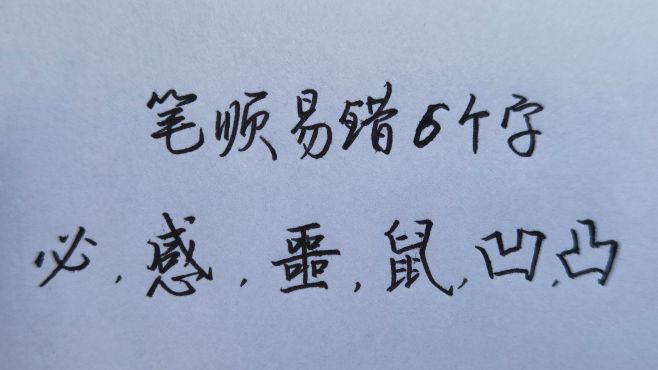 笔顺易错6个字
必,感,噩,鼠,凹,凸